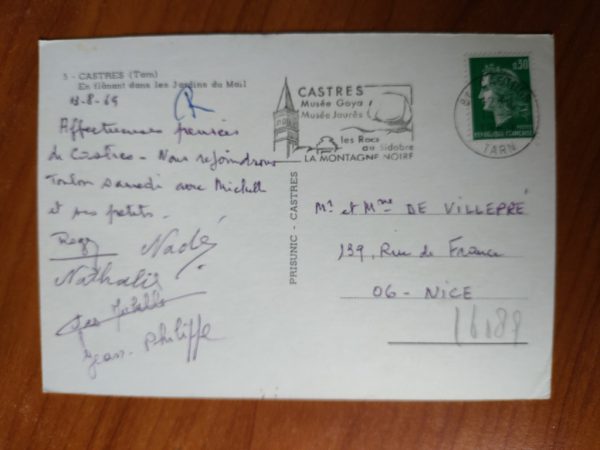 5 - CASTRES (Tarn)
En flânant dans les Jardins du Mail
13-8-69
R
Affectueuses pensées
de Castres - Nous rejoindrons
Toulon samedi avec Michelle
et ses petits -
Nadé
Nathalie
Jean-Philippe
CASTRES
Musée Goya
Musée Jaurès
les Rocs
du Sidobre
LA MONTAGNE NOIRE
0,30
REPUBLIQUE FRANÇAISE
TARN
PRISUNIC - CASTRES
Mr et Mme DE VILLEPRÉ
139, Rue de France
06 - NICE